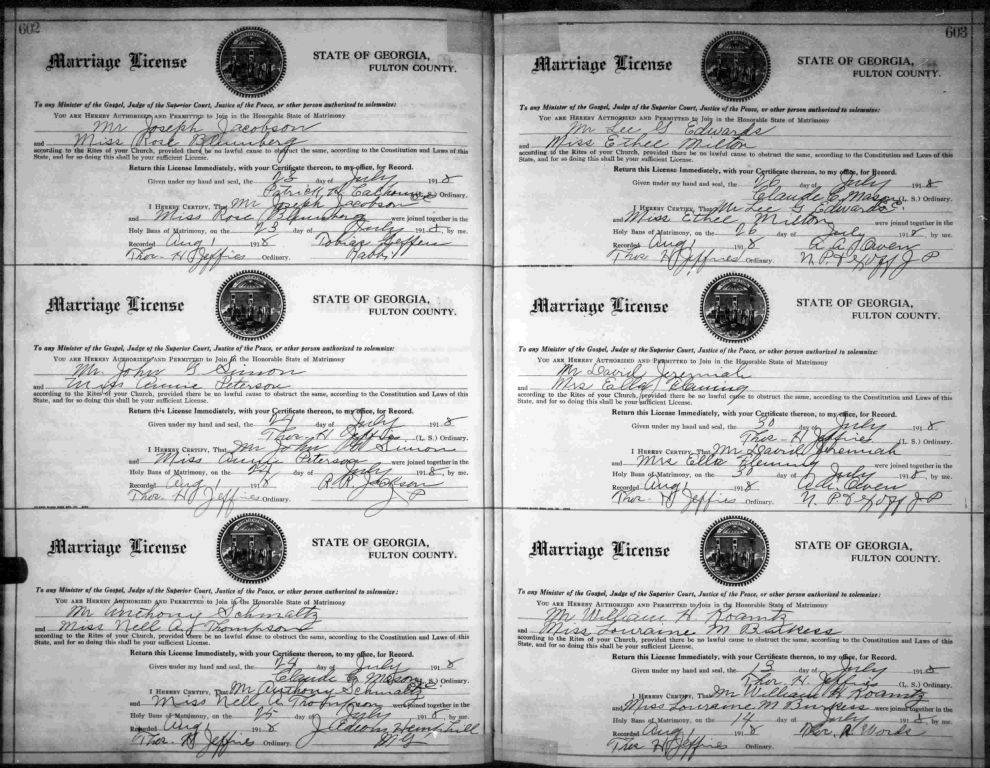 602
Marriage License
STATE OF GEORGIA,
FULTON COUNTY.
To any Minister of the Gospel, Judge of the Superior Court, Justice of the Peace, or other person authorized to solemnize:
YOU ARE HEREBY AUTHORIZED AND PERMITTED to Join in the Honorable State of Matrimony
Mr Joseph Jacobson
and Miss Rose Blumberg
according to the Rites of your Church, provided there be no lawful cause to obstruct the same, according to the Constitution and Laws of this
State, and for so doing this shall be your sufficient License.
Return this License Immediately, with your Certificate thereon, to my office, for Record.
Given under my hand and seal, the 23 day of July 1918
Patrick H Calhoun (L. S.) Ordinary.
I HEREBY CERTIFY, That Mr Joseph Jacobson
and Miss Rose Blumberg were joined together in the
Holy Bans of Matrimony, on the 23 day of July 1918, by me.
Recorded Aug 1 1918 Tobias Geffen
Thos. H Jeffries Ordinary. Rabbi
Marriage License
STATE OF GEORGIA,
FULTON COUNTY.
To any Minister of the Gospel, Judge of the Superior Court, Justice of the Peace, or other person authorized to solemnize:
YOU ARE HEREBY AUTHORIZED AND PERMITTED to Join in the Honorable State of Matrimony
Mr. John G Simon
and Miss Annie Peterson
according to the Rites of your Church, provided there be no lawful cause to obstruct the same, according to the Constitution and Laws of this
State, and for so doing this shall be your sufficient License.
Return this License Immediately, with your Certificate thereon, to my office, for Record.
Given under my hand and seal, the 24 day of July 1918
Thos. H Jeffries (L. S.) Ordinary.
I HEREBY CERTIFY, That Mr John G Simon
and Miss Annie Peterson were joined together in the
Holy Bans of Matrimony, on the 24 day of July 1918, by me.
Recorded Aug 1 1918 R. R. Jackson
Thos. H Jeffries Ordinary. J P
Marriage License
STATE OF GEORGIA,
FULTON COUNTY.
To any Minister of the Gospel, Judge of the Superior Court, Justice of the Peace, or other person authorized to solemnize:
YOU ARE HEREBY AUTHORIZED AND PERMITTED to Join in the Honorable State of Matrimony
Mr Anthony Schmaltz
and Miss Nell A Thompson
according to the Rites of your Church, provided there be no lawful cause to obstruct the same, according to the Constitution and Laws of this
State, and for so doing this shall be your sufficient License.
Return this License Immediately, with your Certificate thereon, to my office, for Record.
Given under my hand and seal, the 24 day of July 1918
Claude C Mason (L. S.) Ordinary.
I HEREBY CERTIFY, That Mr Anthony Schmaltz
and Miss Nell A Thompson were joined together in the
Holy Bans of Matrimony, on the 25 day of July 1918, by me.
Recorded Aug 1 1918 Hemphill
Thos. H Jeffries Ordinary. M G
603
Marriage License
STATE OF GEORGIA,
FULTON COUNTY.
To any Minister of the Gospel, Judge of the Superior Court, Justice of the Peace, or other person authorized to solemnize:
YOU ARE HEREBY AUTHORIZED AND PERMITTED to Join in the Honorable State of Matrimony
Mr Lee G Edwards
and Miss Ethel Milton
according to the Rites of your Church, provided there be no lawful cause to obstruct the same, according to the Constitution and Laws of this
State, and for so doing this shall be your sufficient License.
Return this License Immediately, with your Certificate thereon, to my office, for Record.
Given under my hand and seal, the 26 day of July 1918
Claude C Mason (L. S.) Ordinary.
I HEREBY CERTIFY, That Mr Lee G Edwards
and Miss Ethel Milton were joined together in the
Holy Bans of Matrimony, on the 26 day of July 1918, by me.
Recorded Aug 1 1918 A. A. Owen
Thos H Jeffries Ordinary. N. P. & Ex Off J P
Marriage License
STATE OF GEORGIA,
FULTON COUNTY.
To any Minister of the Gospel, Judge of the Superior Court, Justice of the Peace, or other person authorized to solemnize:
YOU ARE HEREBY AUTHORIZED AND PERMITTED to Join in the Honorable State of Matrimony
Mr David Jeremiah
and Mrs Ella Fleming
according to the Rites of your Church, provided there be no lawful cause to obstruct the same, according to the Constitution and Laws of this
State, and for so doing this shall be your sufficient License.
Return this License Immediately, with your Certificate thereon, to my office, for Record.
Given under my hand and seal, the 30 day of July 1918
Thos. H Jeffries (L. S.) Ordinary.
I HEREBY CERTIFY, That Mr David Jeremiah
and Mrs Ella Fleming were joined together in the
Holy Bans of Matrimony, on the 30 day of July 1918, by me.
Recorded Aug 1 1918 A. A. Owen
Thos. H Jeffries Ordinary. N. P & Ex Off J P
Marriage License
STATE OF GEORGIA,
FULTON COUNTY.
To any Minister of the Gospel, Judge of the Superior Court, Justice of the Peace, or other person authorized to solemnize:
YOU ARE HEREBY AUTHORIZED AND PERMITTED to Join in the Honorable State of Matrimony
Mr William H Koamtz
and Miss Louraine M Burkess
according to the Rites of your Church, provided there be no lawful cause to obstruct the same, according to the Constitution and Laws of this
State, and for so doing this shall be your sufficient License.
Return this License Immediately, with your Certificate thereon, to my office, for Record.
Given under my hand and seal, the 13 day of July 1918
Thos. H. Jeffries (L. S.) Ordinary.
I HEREBY CERTIFY, That Mr William H Koamtz
and Miss Louraine M Burkess were joined together in the
Holy Bans of Matrimony, on the 14 day of July 1918, by me.
Recorded Aug 1 1918 Words
Thos H Jeffries Ordinary.